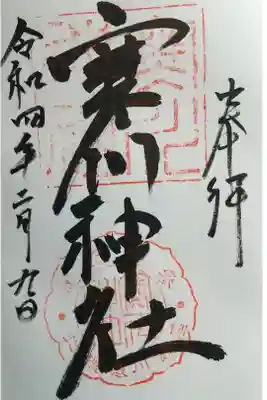 奉拝
寒川神社
令和四年二月九日